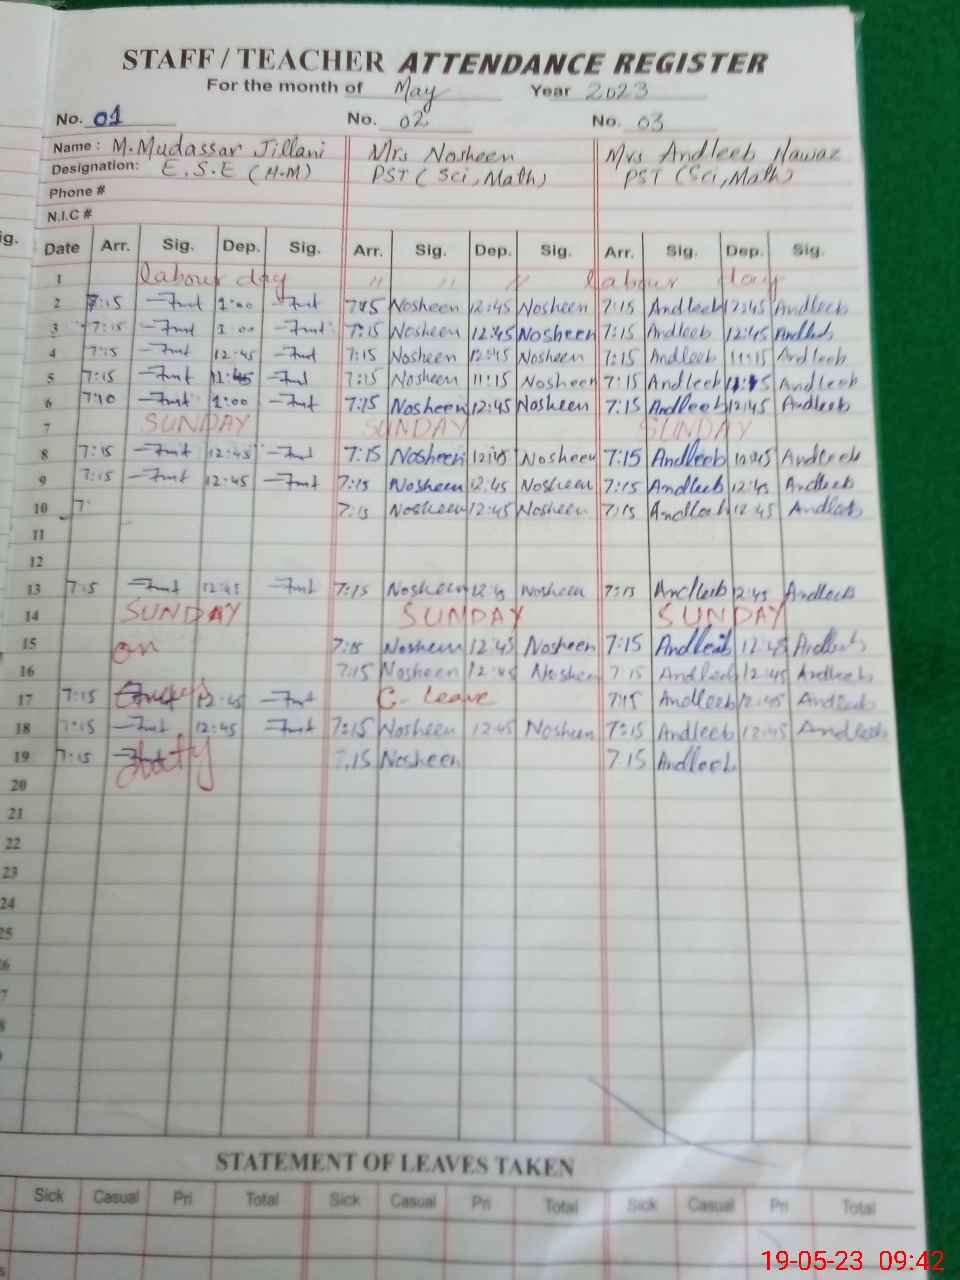 STAFF / TEACHER ATTENDANCE REGISTER
For the month of May Year 2023
No. 01 No. 02 No. 03
Name : M. Mudassar Jillani Mrs Nosheen Mrs Andleeb Nawaz
Designation: E.S.E (H-M) PST (Sci, Math) PST (Sci, Math)
Phone #
N.I.C #
ig. Date Arr. Sig. Dep. Sig. Arr. Sig. Dep. Sig. Arr. Sig. Dep. Sig.
1 labour day " " " labour day
2 7:15 1:00 7:15 Nosheen 12:45 Nosheen 7:15 Andleeb 12:45 Andleeb
3 7:15 1:00 7:15 Nosheen 12:45 Nosheen 7:15 Andleeb 12:45 Andleeb
4 7:15 12:45 7:15 Nosheen 12:45 Nosheen 7:15 Andleeb 11:15 Andleeb
5 7:15 7:15 Nosheen 11:15 Nosheen 7:15 Andleeb Andleeb
6 7:10 1:00 7:15 Nosheen 12:45 Nosheen 7:15 Andleeb 12:45 Andleeb
7 SUNDAY SUNDAY SUNDAY
8 7:15 12:45 7:15 Nosheen 12:45 Nosheen 7:15 Andleeb 12:45 Andleeb
9 7:15 12:45 7:15 Nosheen 12:45 Nosheen 7:15 Andleeb 12:45 Andleeb
10 7: 7:15 Nosheen 12:45 Nosheen 7:15 Andleeb 12:45 Andleeb
11
12
13 7:15 12:45 7:15 Nosheen 12:45 Nosheen 7:15 Andleeb 12:45 Andleeb
14 SUNDAY SUNDAY SUNDAY
15 on 7:15 Nosheen 12:45 Nosheen 7:15 Andleeb 12:45 Andleeb
16 7:15 Nosheen 12:45 Nosheen 7:15 Andleeb 12:45 Andleeb
17 7:15 12:45 C- Leave 7:15 Andleeb 12:45 Andleeb
18 7:15 12:45 7:15 Nosheen 12:45 Nosheen 7:15 Andleeb 12:45 Andleeb
19 7:15 duty 7:15 Nosheen 7:15 Andleeb
20
21
22
23
24
25
6
7
8
9
STATEMENT OF LEAVES TAKEN
Sick Casual Pri Total Sick Casual Pri Total Sick Casual Pri Total
19-05-23 09:42